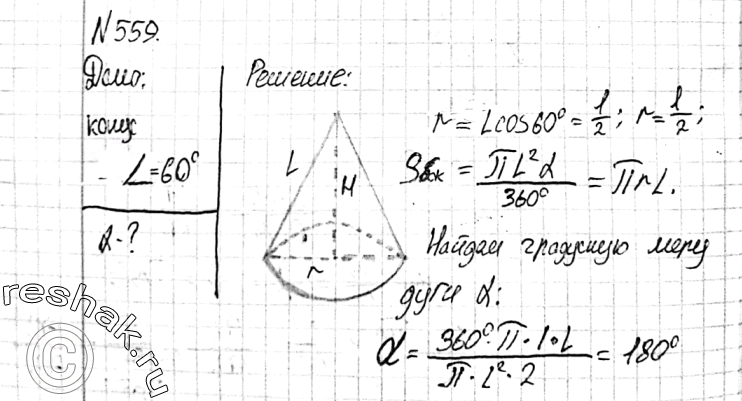 N 559.
Дано:
конус
- L=60°
α-?
Решение:
L
H
r
r = Lcos60° = l/2; r = l/2;
Sбок = πL²α/360° = πrL.
Найдем градусную меру
дуги α:
α = 360°·π·l·L/π·L²·2 = 180°
reshak.ru
©